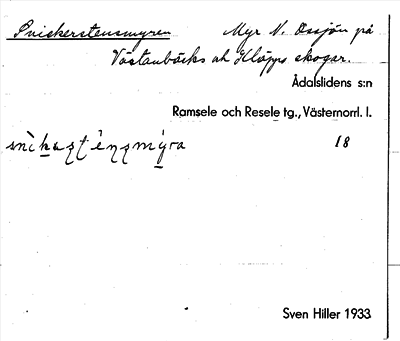 Snickerstensmyren Myr N. Ossjön på
Västanbäcks och Kläpps skogar.
Ådalslidens s:n
Ramsele och Resele tg., Västernorrl. l.
18
Sven Hiller 1933